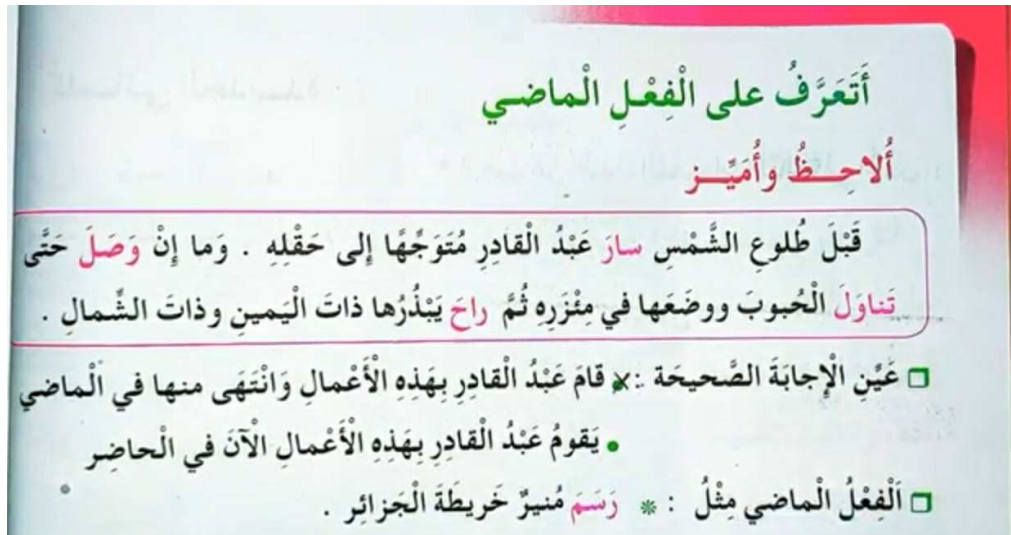 أَتَعَرَّفُ على الْفِعْلِ الْماضي
أُلاحِظُ وأُمَيِّز
قَبْلَ طُلوعِ الشَّمْسِ سارَ عَبْدُ الْقادِرِ مُتَوَجِّهًا إِلى حَقْلِهِ . وَما إِنْ وَصَلَ حَتَّى
تَناوَلَ الْحُبوبَ ووضَعَها في مِئْزَرِهِ ثُمَّ راحَ يَبْذُرُها ذاتَ الْيَمينِ وذاتَ الشِّمالِ .
❒ عَيِّنِ الْإِجابَةَ الصَّحيحَة : × • قامَ عَبْدُ الْقادِرِ بِهَذِهِ الْأَعْمالِ وَانْتَهَى منها في الْماضي
• يَقومُ عَبْدُ الْقادِرِ بِهَذِهِ الْأَعْمالِ الْآنَ في الْحاضِر
❒ اَلْفِعْلُ الْماضي مِثْلُ : * رَسَمَ مُنيرٌ خَريطَةَ الْجَزائِر .